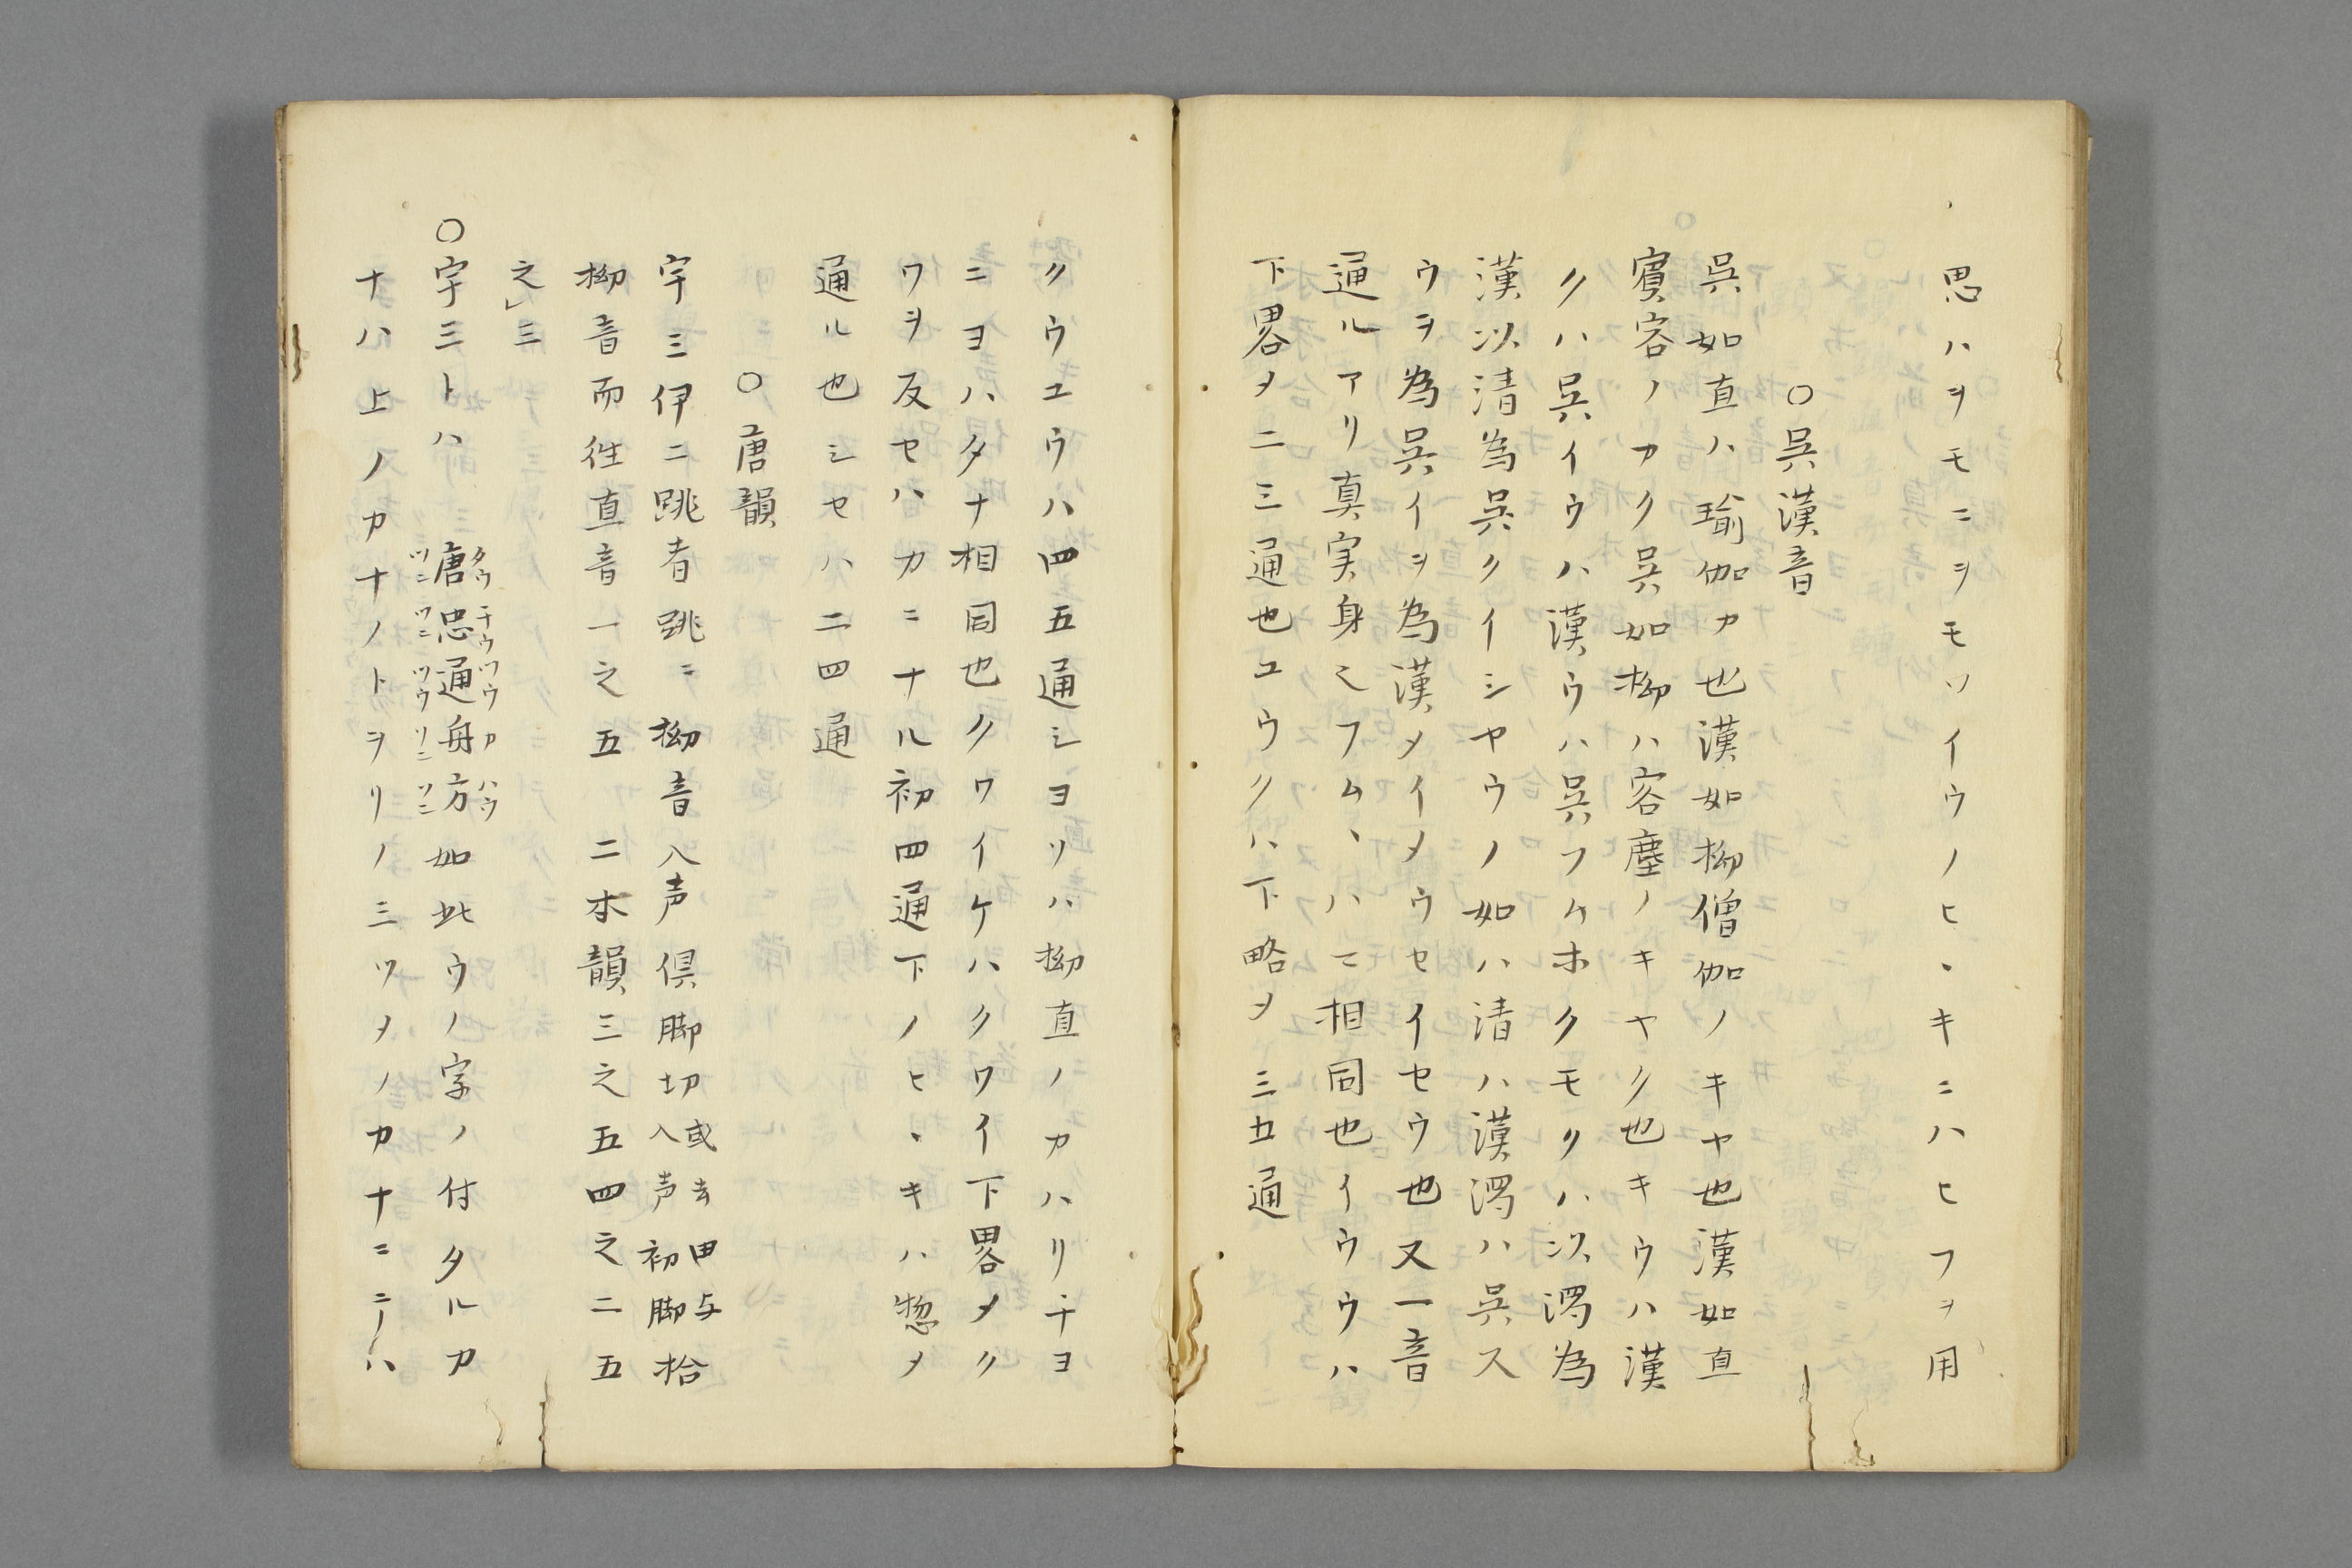 思ハヲモニヲモソイウノヒヽキニハヒフヲ用
○呉漢音
呉如直ハ瑜伽カ也漢如拗僧伽ノキヤ也漢如直
賓客ノカク呉如拗ハ客塵ノキヤク也キウハ漢
クハ呉イウハ漢ウハ呉フムホクモクハ以濁為
漢以清為呉クイシヤウノ如ハ清ハ漢濁ハ呉ス
ウヲ為呉イヲ為漢メイメウセイセウ也又一音
通ルアリ真実身ミフム、ハ相同也イウウハ
下畧メ二三通也ユウクハ下略メ三五通
クウユウハ四五通シヨリハ拗直ノカハリチヨ
ニヨハタナ相同也クワイケハクワイ下畧メク
ワヲ反セハカニナル初四通下ノヒヽキハ惣メ
通ル也シセハ二四通
○唐韻
宇三伊二跳者跳ニ拗音入声倶脚切或去入声由与初脚拾
拗音而往直音一之五二本韻三之五四之二五
之」三
○宇三トハ唐忠通舟方如此ウノ字ノ付タルカ
タウチウツウカハウ
ツニツニツウリニソニ
ナハ上ノカナノトヲリノ三ツメノカナニニーハ